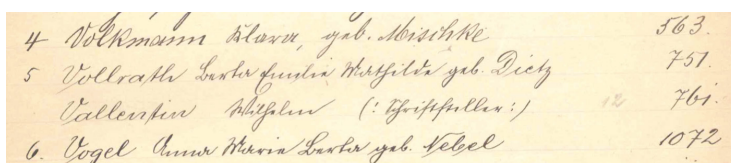 4 Volkmann Klara, geb. Mischke 563.
5 Vollrath Berta Emilie Mathilde geb. Dietz 751.
Vallentin Wilhelm (: Schriftsteller :) 12 761.
6. Vogel Anna Marie Berta geb. Nebel 1072